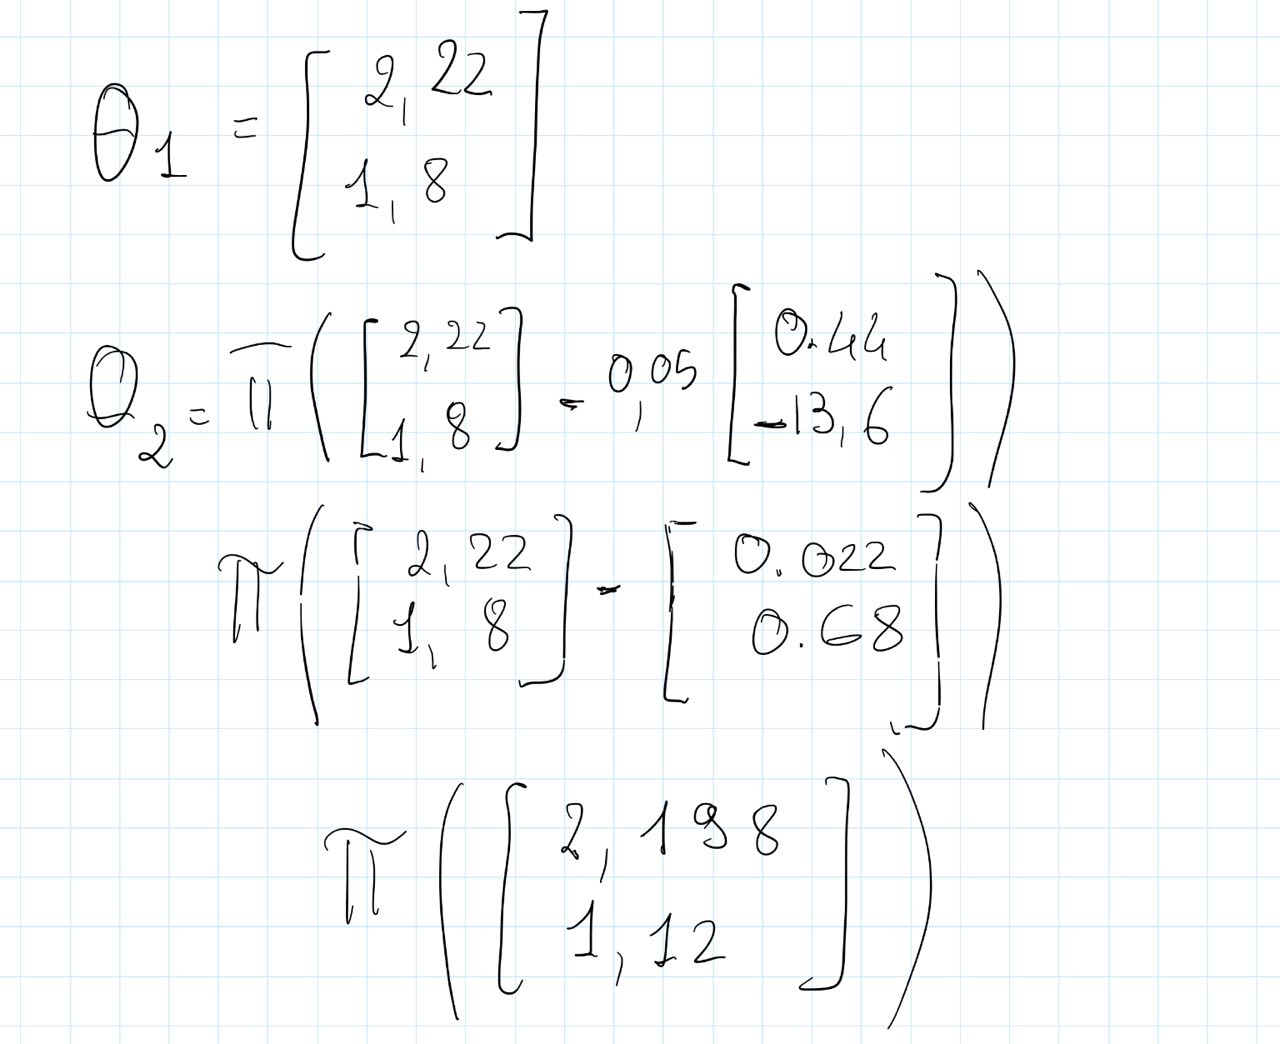 θ₁ = [2,22
1,8]
θ₂ = π([2,22
1,8] - 0,05 [0.44
-13,6])
π([2,22
1,8] - [0.022
0.68])
π([2,198
1,12])